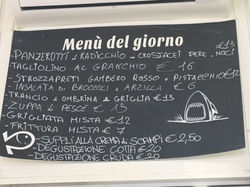 Menù del giorno
PANZEROTTI RADICCHIO - CROSTACEI PERE NOCI €13
TAGLIOLINO AL GRANCHIO € 16
STROZZAPRETI GAMBERO ROSSO E PISTACCHIO €12
INSALATA DI BROCCOLI E ARZILLA € 6
TRANCIO OMBRINA GRIGLIA €13
ZUPPA PESCE €15
GRIGLIATA MISTA €12
FRITTURA MISTA € 7
SUPPLÌ ALLA CREMA SCAMPI €2,50
- DEGUSTAZIONE COTTA €20
- DEGUSTAZIONE CRUDA €20